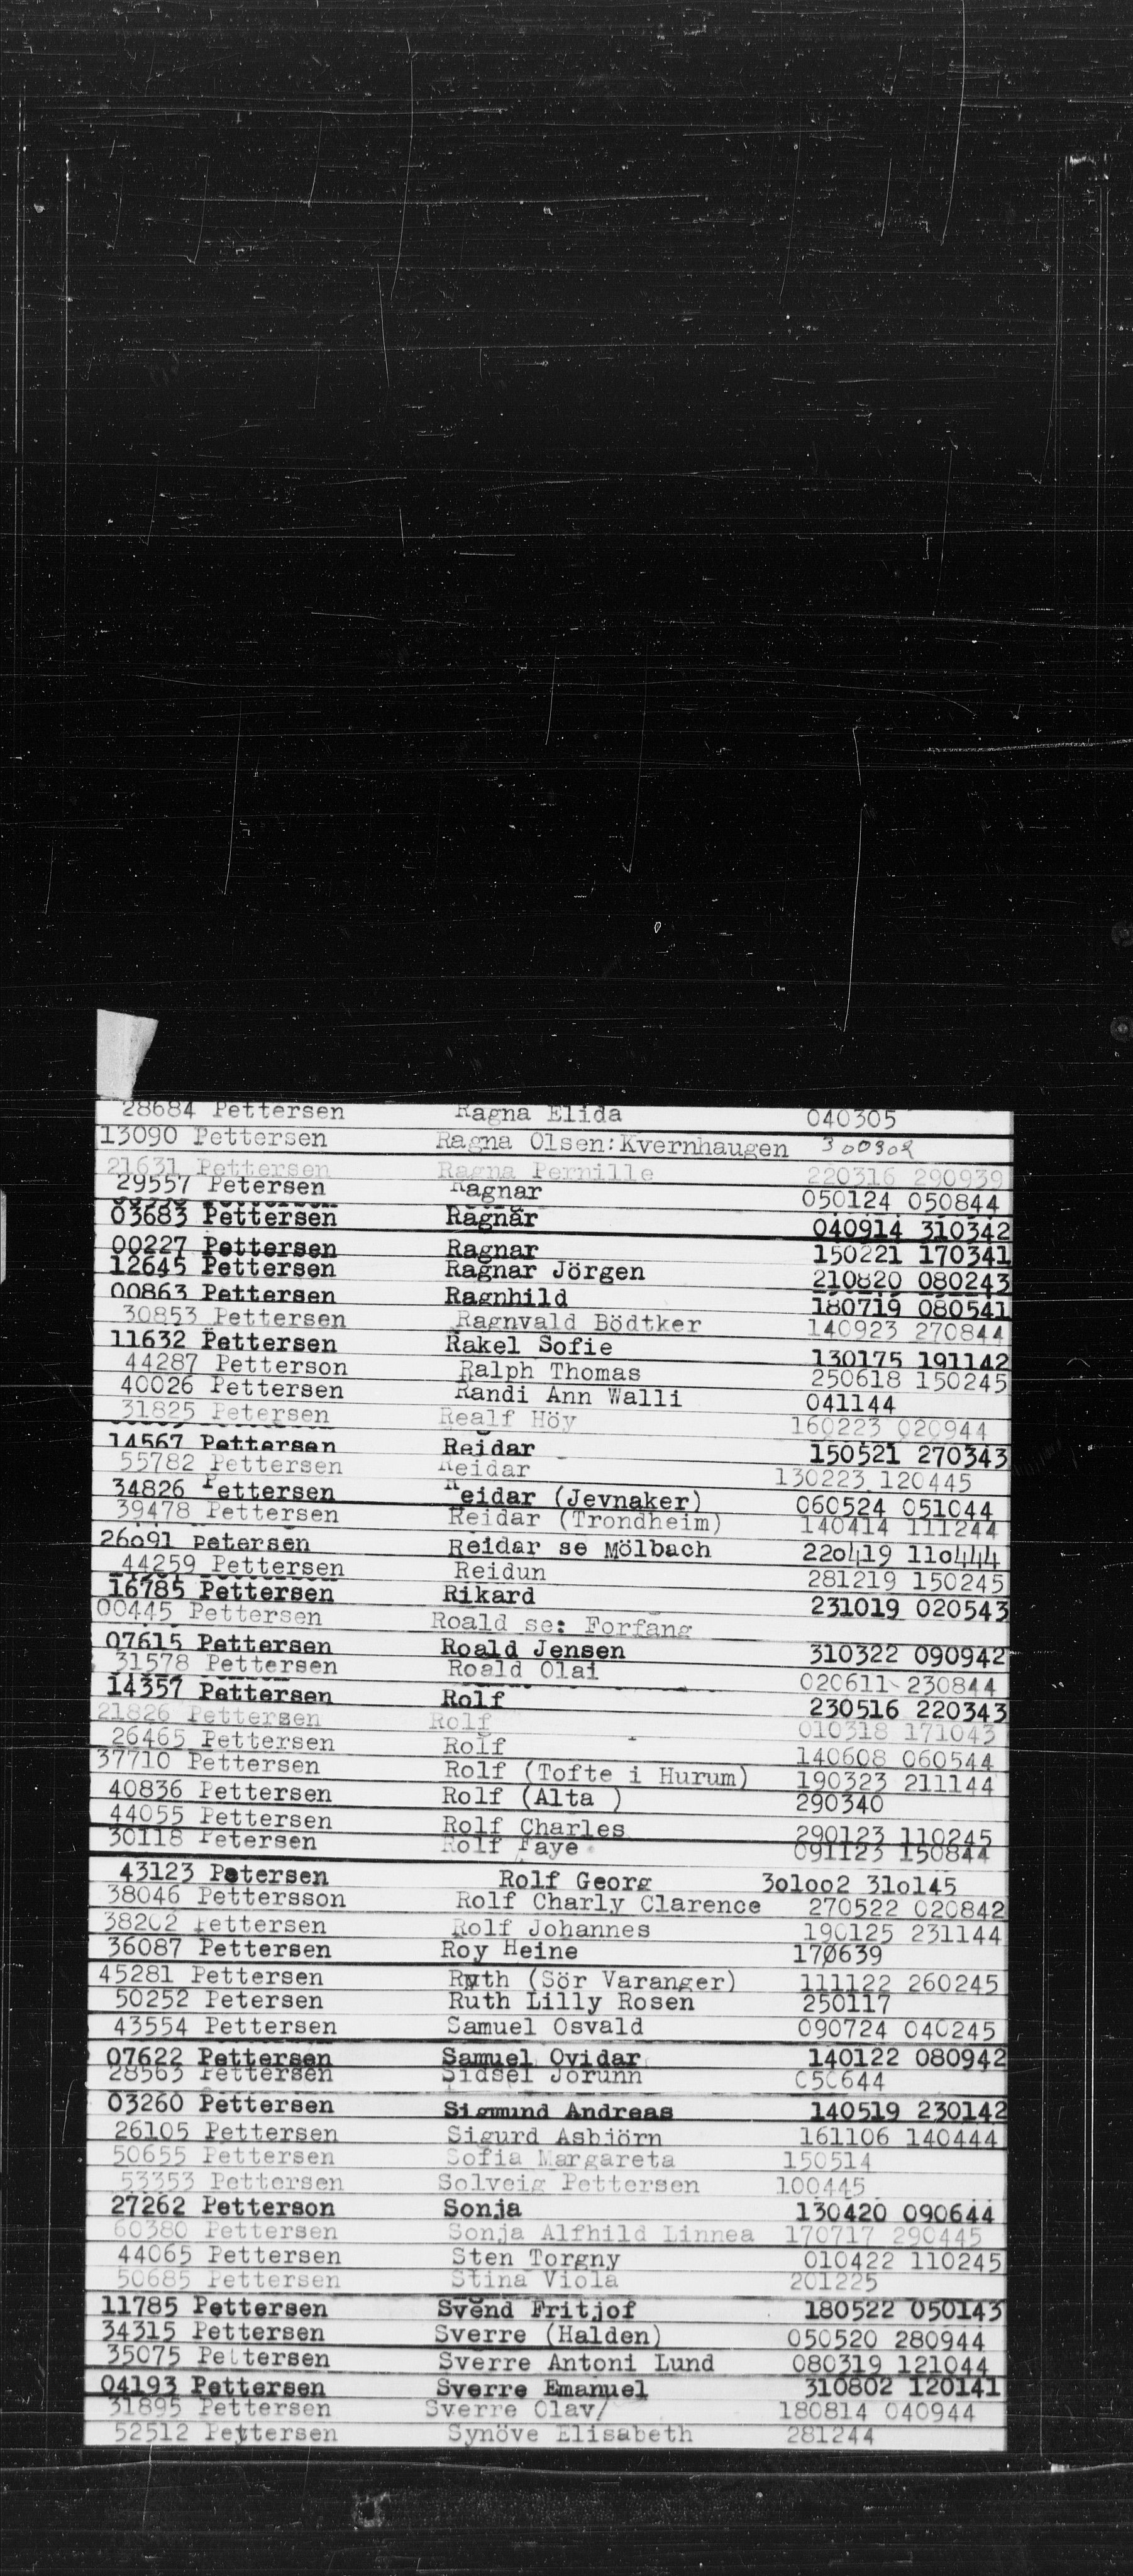 28684 Pettersen Ragna Elida 040305
13090 Pettersen Ragna Olsen:Kvernhaugen 300302
21631 Pettersen Ragna Pernille 220316 290939
29557 Petersen Ragnar 050124 050844
03683 Pettersen Ragnar 040914 310342
00227 Pettersen Ragnar 150221 170341
12645 Pettersen Ragnar Jörgen 210820 080243
00863 Pettersen Ragnhild 180719 080541
30853 Pettersen Ragnvald Bödtker 140923 270844
11632 Pettersen Rakel Sofie 130175 191142
44287 Petterson Ralph Thomas 250618 150245
40026 Pettersen Randi Ann Walli 041144
31825 Petersen Realf Höy 160223 020944
14567 Pettersen Reidar 150521 270343
55782 Pettersen Reidar 130223 120445
34826 Pettersen Reidar (Jevnaker) 060524 051044
39478 Pettersen Reidar (Trondheim) 140414 111244
26091 Petersen Reidar se Mölbach 220419 110444
44259 Pettersen Reidun 281219 150245
16785 Pettersen Rikard 231019 020543
00445 Pettersen Roald se: Forfang
07615 Pettersen Roald Jensen 310322 090942
31578 Pettersen Roald Olai 020611 230844
14357 Pettersen Rolf 230516 220343
21826 Pettersen Rolf 010318 171043
26465 Pettersen Rolf 140608 060544
37710 Pettersen Rolf (Tofte i Hurum) 190323 211144
40836 Pettersen Rolf (Alta ) 290340
44055 Pettersen Rolf Charles 290123 110245
30118 Petersen Rolf Faye 091123 150844
43123 Petersen Rolf Georg 301002 310145
38046 Pettersson Rolf Charly Clarence 270522 020842
38202 Pettersen Rolf Johannes 190125 231144
36087 Pettersen Roy Heine 170639
45281 Pettersen Ruth (Sör Varanger) 111122 260245
50252 Petersen Ruth Lilly Rosen 250117
43554 Pettersen Samuel Osvald 090724 040245
07622 Pettersen Samuel Ovidar 140122 080942
28565 Pettersen Sidsel Jorunn 050644
03260 Pettersen Sigmund Andreas 140519 230142
26105 Pettersen Sigurd Asbjörn 161106 140444
50655 Pettersen Sofia Margareta 150514
53353 Pettersen Solveig Pettersen 100445
27262 Petterson Sonja 130420 090644
60380 Pettersen Sonja Alfhild Linnea 170717 290445
44065 Pettersen Sten Torgny 010422 110245
50685 Pettersen Stina Viola 201225
11785 Pettersen Svend Fritjof 180522 050143
34315 Pettersen Sverre (Halden) 050520 280944
35075 Pettersen Sverre Antoni Lund 080319 121044
04193 Pettersen Sverre Emanuel 310802 120141
31895 Pettersen Sverre Olav/ 180814 040944
52512 Pettersen Synöve Elisabeth 281244